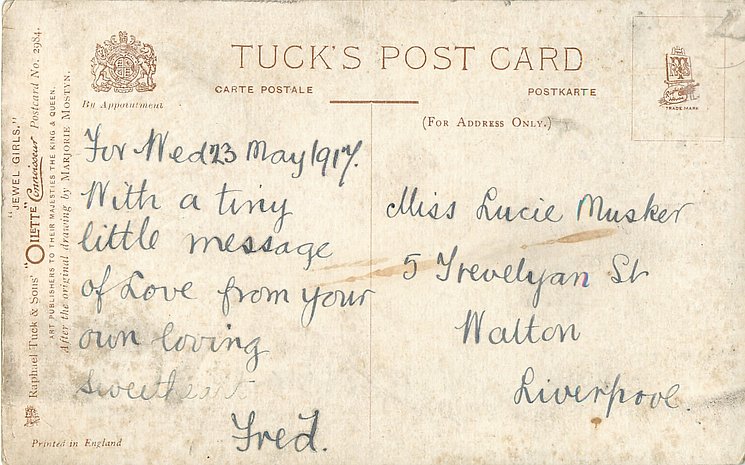 TUCK'S POST CARD
CARTE POSTALE
POSTKARTE
By Appointment
(FOR ADDRESS ONLY.)
TRADE MARK
For Wed 23 May 1917.
With a tiny
little message
of Love from your
own loving
sweetheart
Fred.
Miss Lucie Musker
5 Trevelyan St
Walton
Liverpool.
"JEWEL GIRLS."
Raphael Tuck & Sons' "OILETTE" Connoisseur Postcard No. 2984.
ART PUBLISHERS TO THEIR MAJESTIES THE KING & QUEEN.
After the original drawing by MARJORIE MOSTYN.
Printed in England